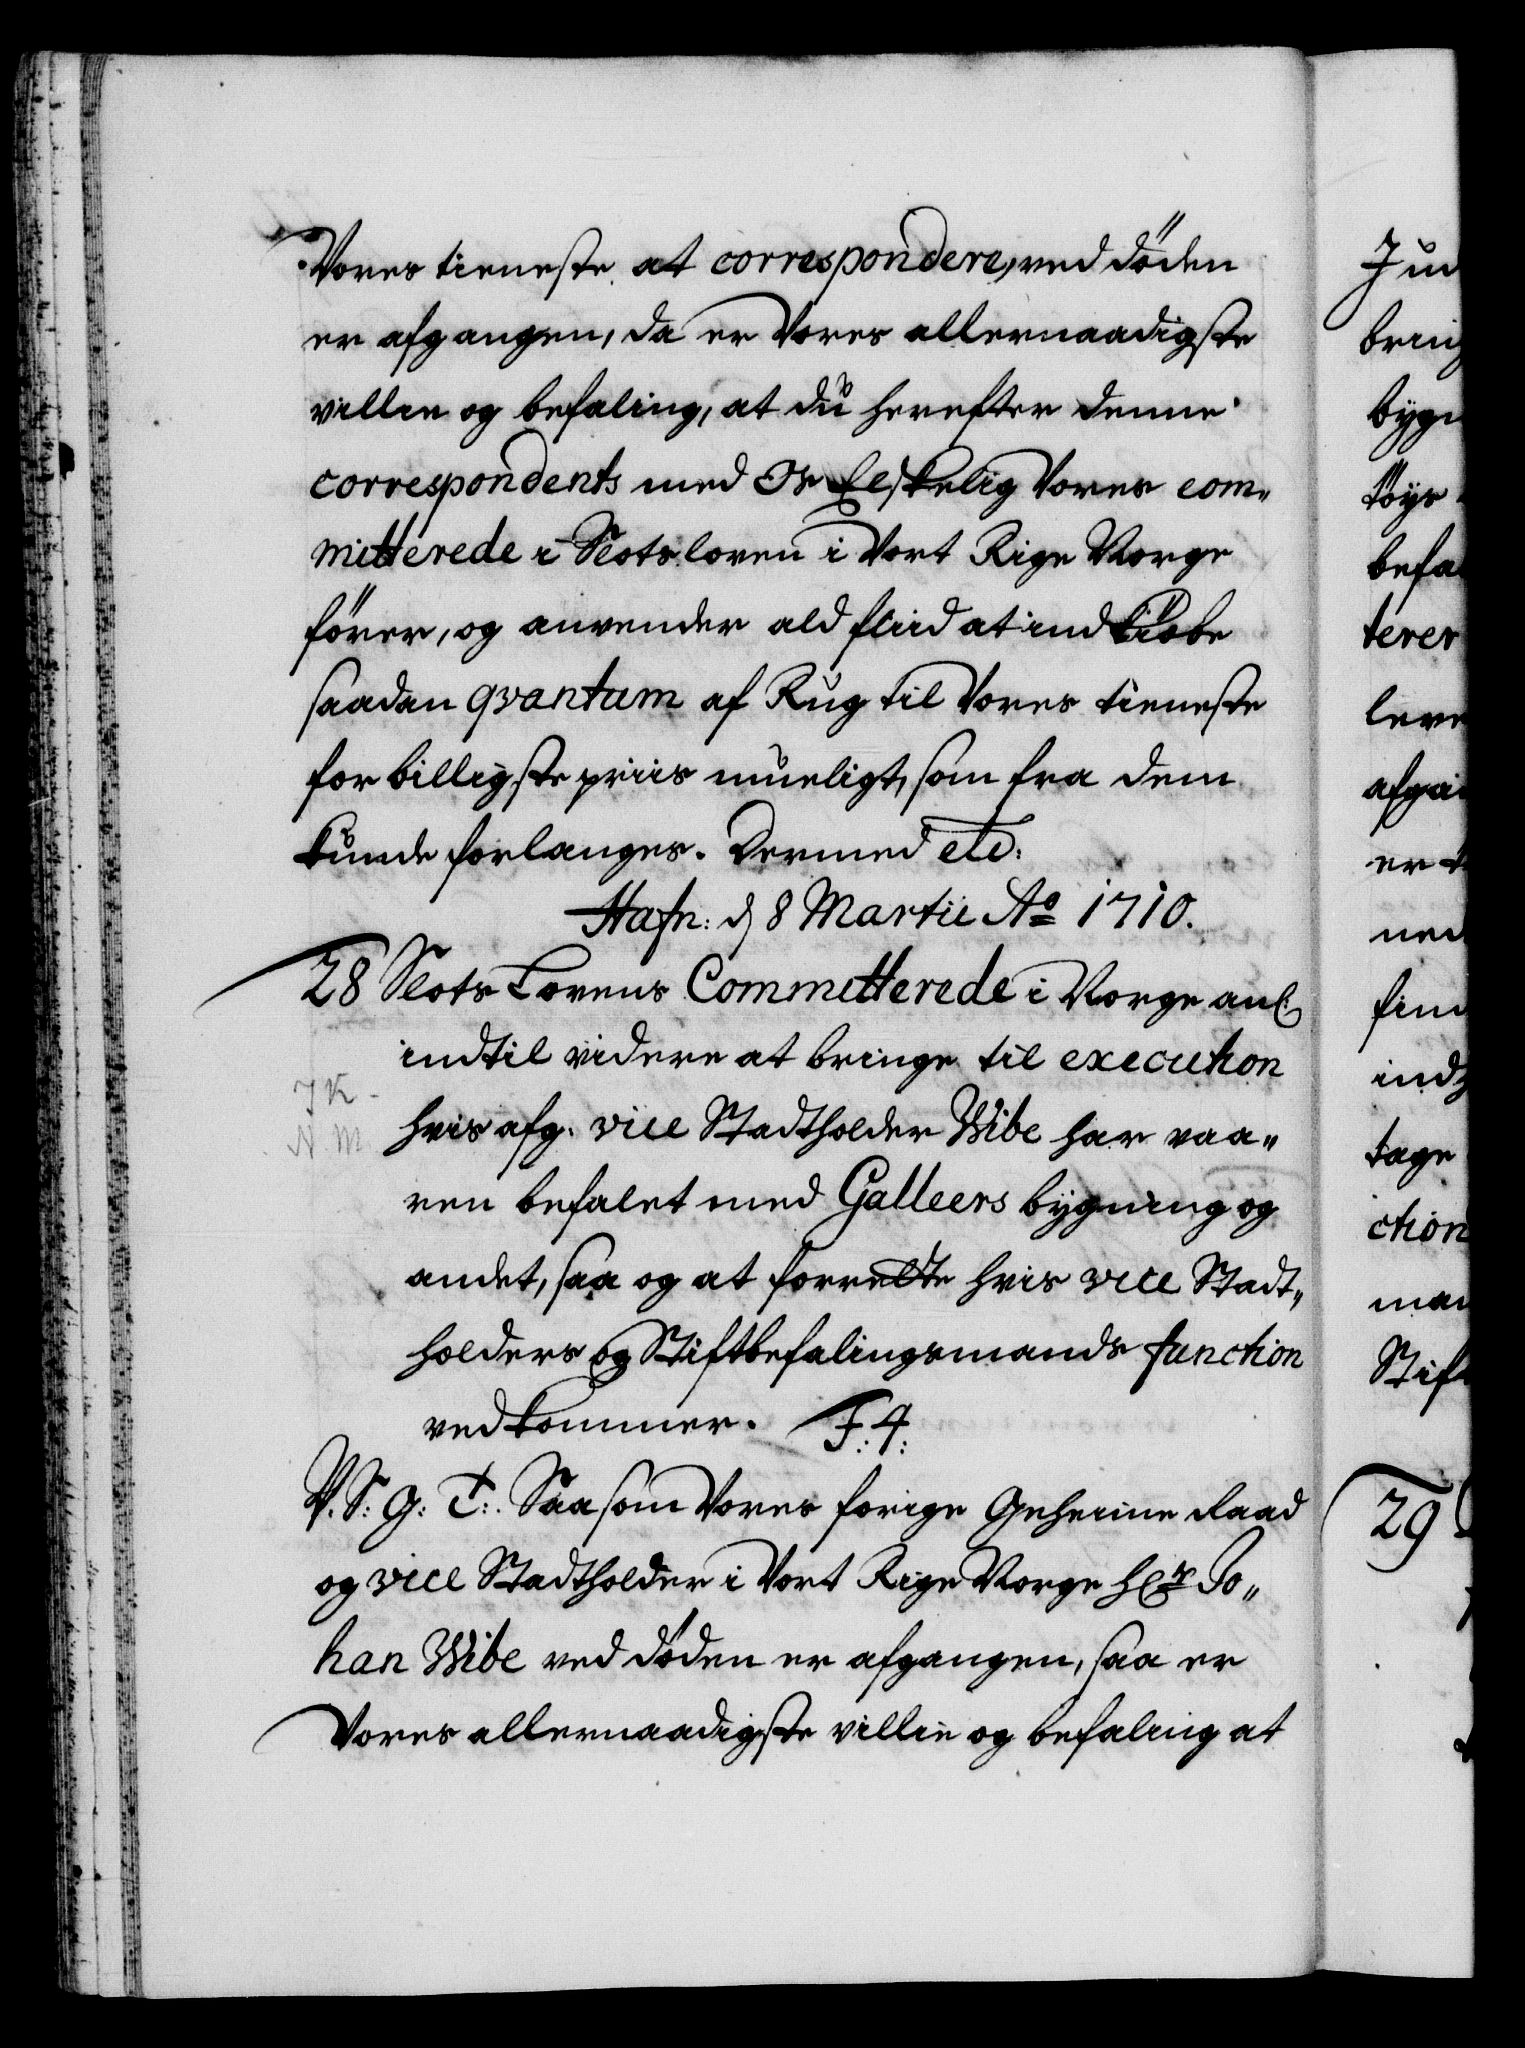 Vores tieneste at correspondere, ved döden
er afgangen, da er Vores allernaadigste
villie og befaling, at du herefter denne
correspondents med Os Elskelig Vores com„
mitterede i Slotsloven i Vort Rige Norge
förer, og anvender ald fliid at indkiöbe
saadan qvantum af Rug til Vores tieneste
for billigste priis mueligt, som fra dem
kunde forlanges. Dermed etc:
Hafn: d 8 Martii Ao 1710.
28 Slots Lovens Committerede i Norge anl:
indtil videre at bringe til execution
J K.
hvis afg. vice Stadtholder Wibe har vaa„
N M
ren befalet med Galleers bygning og
andet, saa og at forrette hvis vice Stadt„
holders og Stiftbefalingsmands function
vedkommer. F. 4:
V. S. G. T: Saasom Vores forige Geheime Raad
og vice Stadtholder i Vort Rige Norge Hr Jo„
han Wibe ved döden er afgangen, saa er
Vores allernaadigste villie og befaling at
Jud
bring
bygn
töys
befa
terer
leve
afga
er
ned
find
ind
tage
ction
man
Stif
29